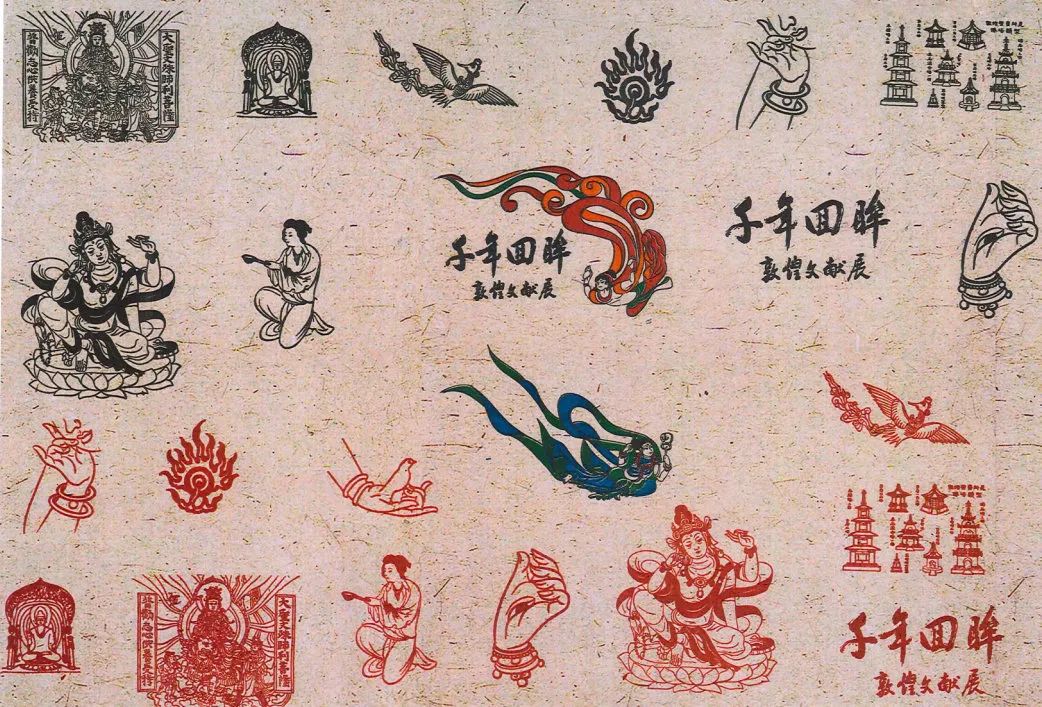 大聖文殊師利菩薩
普勸志心供養受持
千年回眸
敦煌文献展
千年回眸
敦煌文献展
大聖文殊師利菩薩
普勸志心供養受持
千年回眸
敦煌文献展